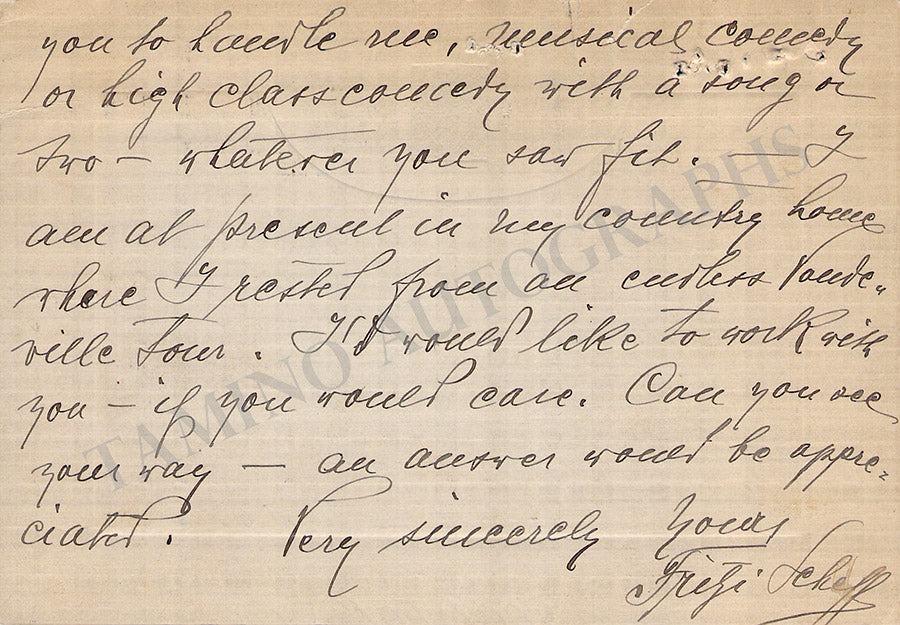 you to handle me, musical comedy
or high class comedy with a song or
two — whatever you saw fit. — I
am at present in my country home
where I rested from an endless Vaude-
ville Tour. I'd would like to work with
you — if you would care. Can you see
your way — an answer would be appre-
ciated. Very sincerely Yours
Fritzi Scheff
TAMINO AUTOGRAPHS